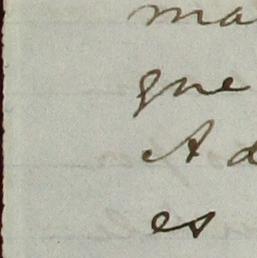 ma
que
A d
es